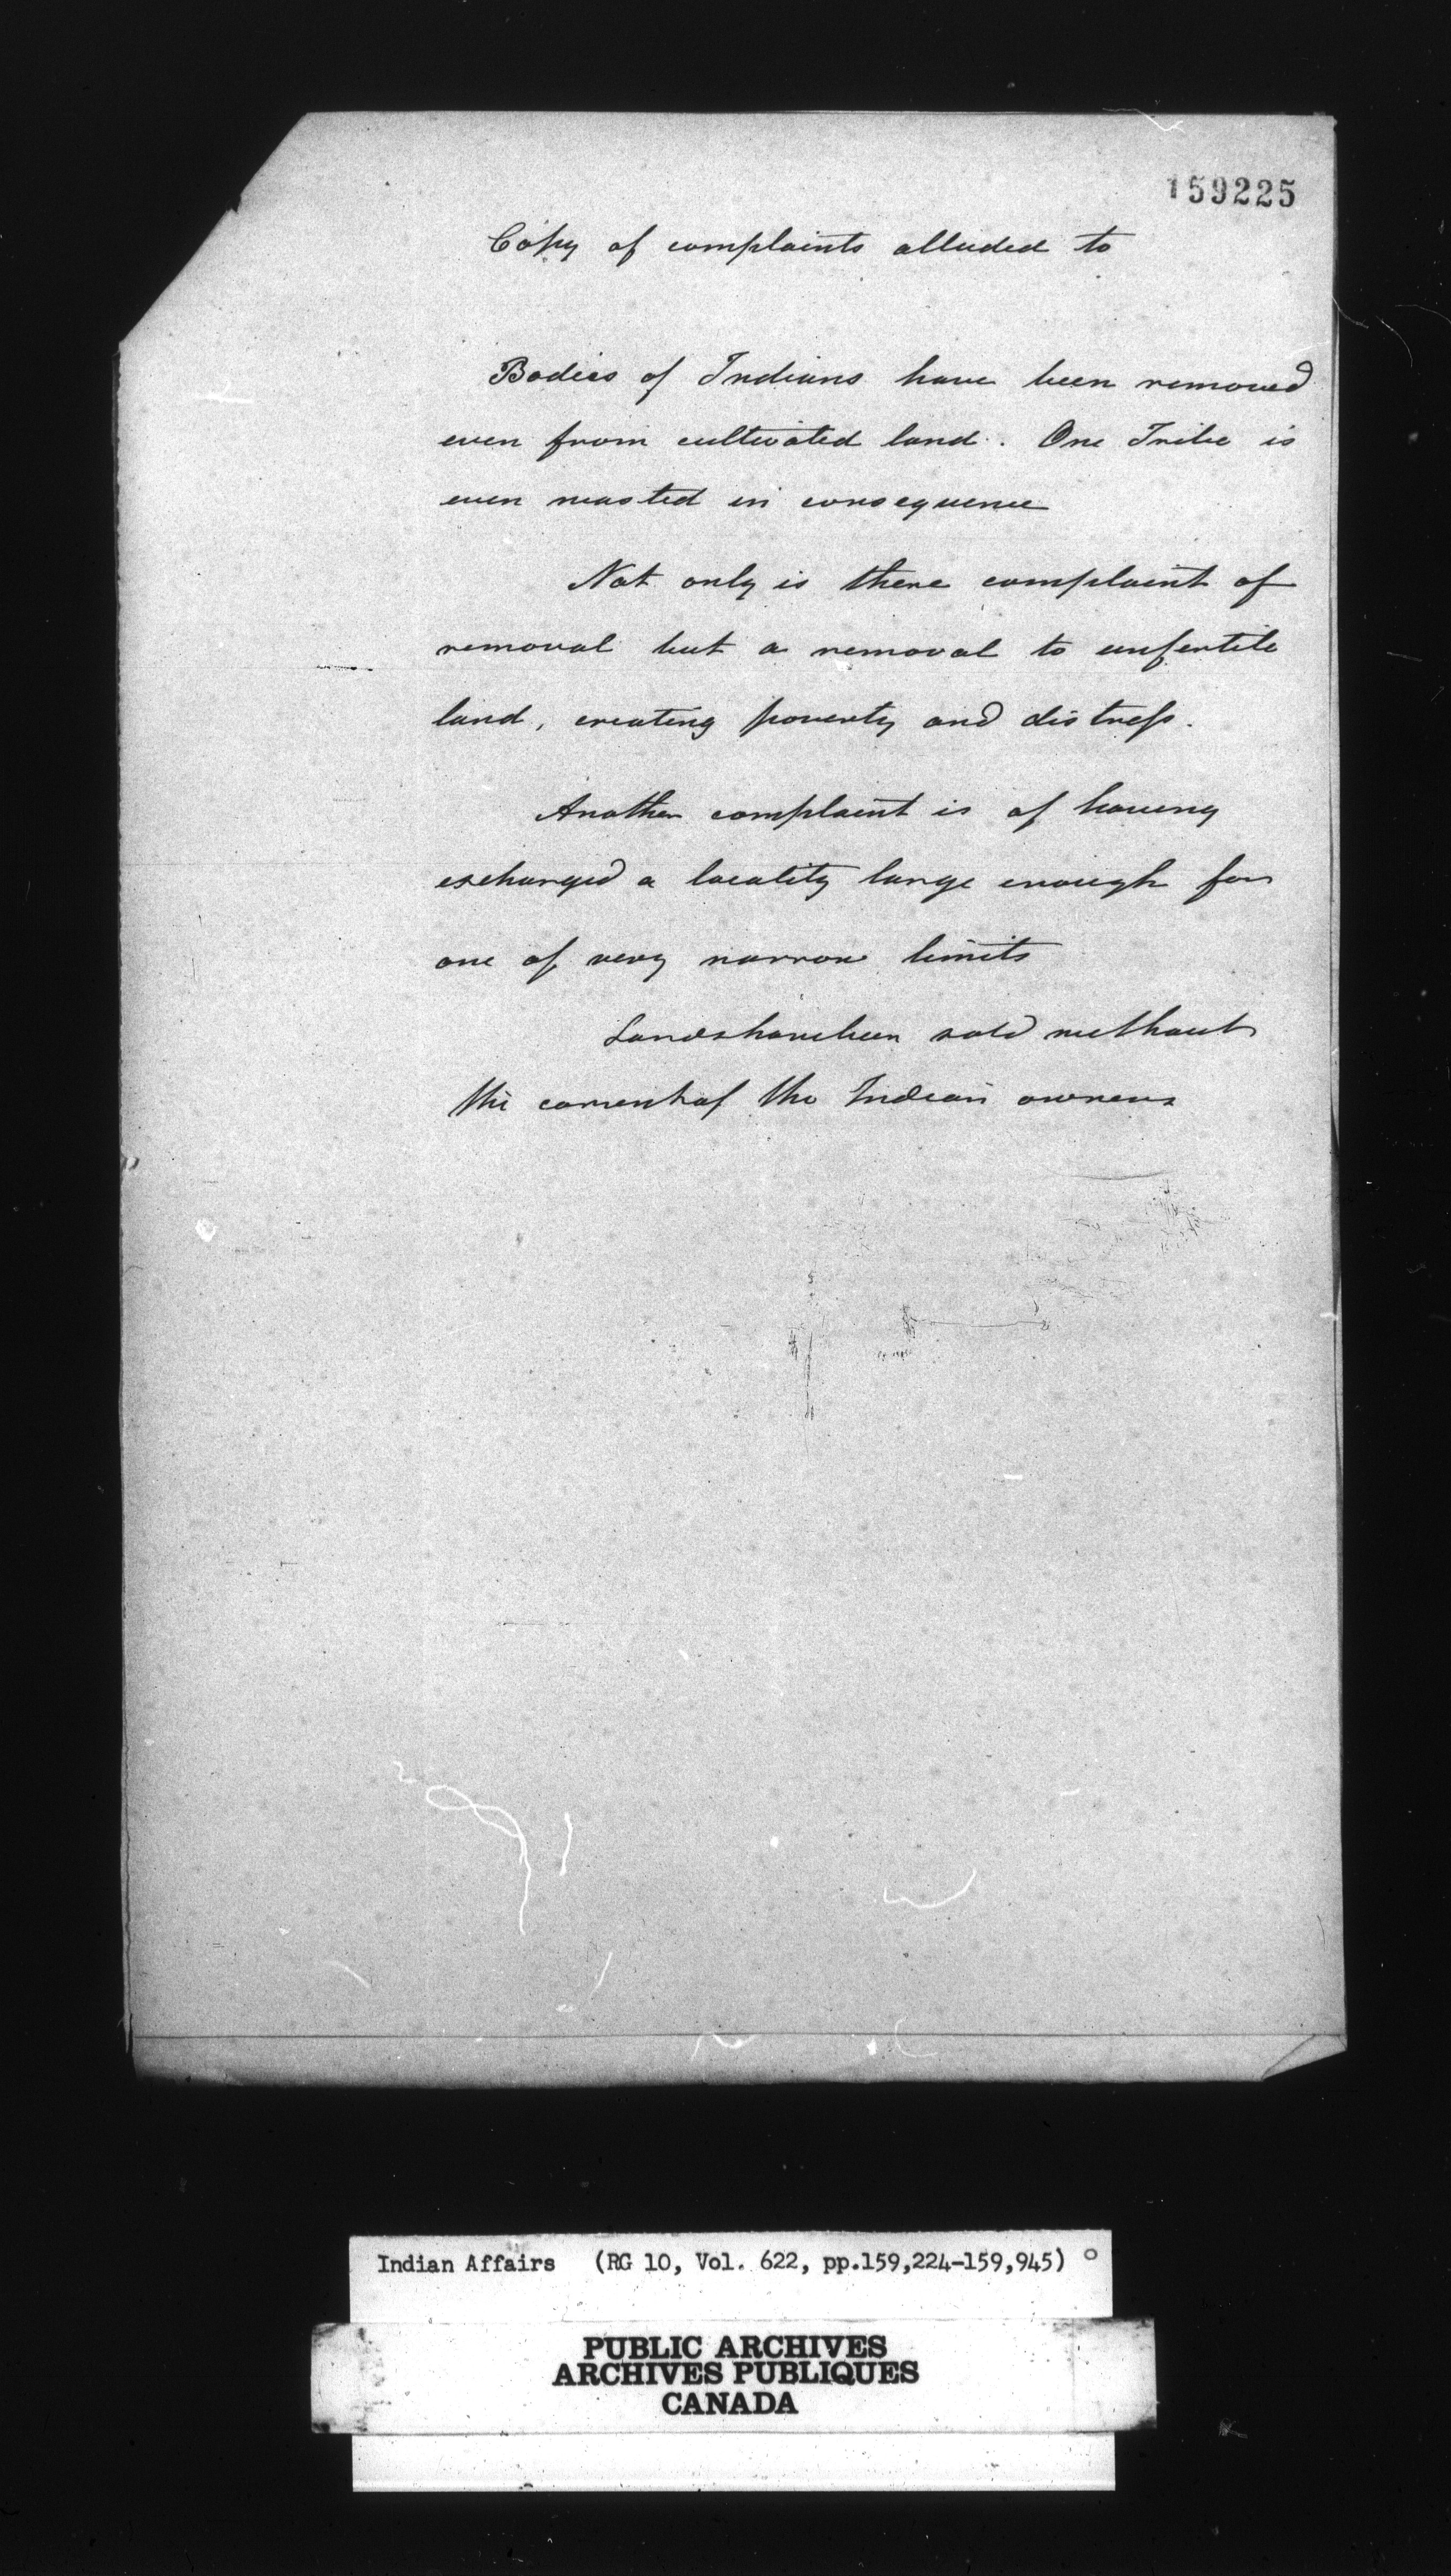 159225
Copy of complaints alluded to
Bodies of Indians have been removed
even from cultivated land. One Tribe is
even wasted in consequence
Not only is there complaint of
removal but a removal to unfertile
land, creating poverty and distress.
Another complaint is of having
exchanged a locality large enough for
one of very narrow limits
Lands have been sold without
the consent of the Indian owners
Indian Affairs (RG 10, Vol. 622, pp.159,224-159,945)
PUBLIC ARCHIVES
ARCHIVES PUBLIQUES
CANADA